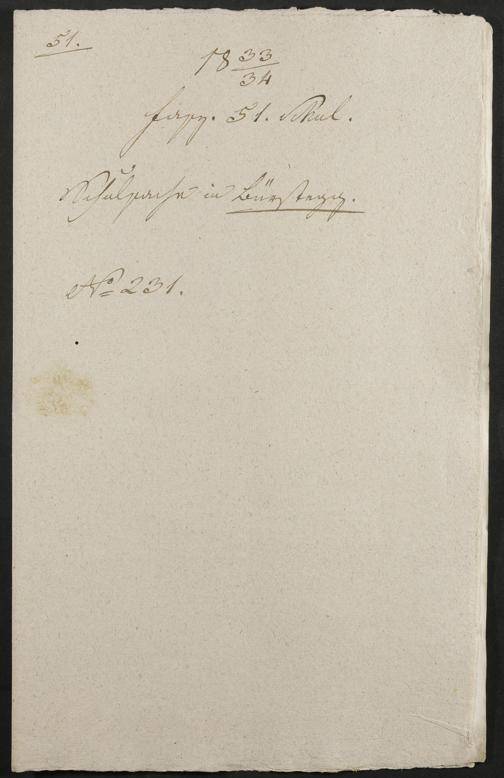 51.
18 33/34
Fasz. 51. Schul.
Schulsache in Bürstegg.
No 231.